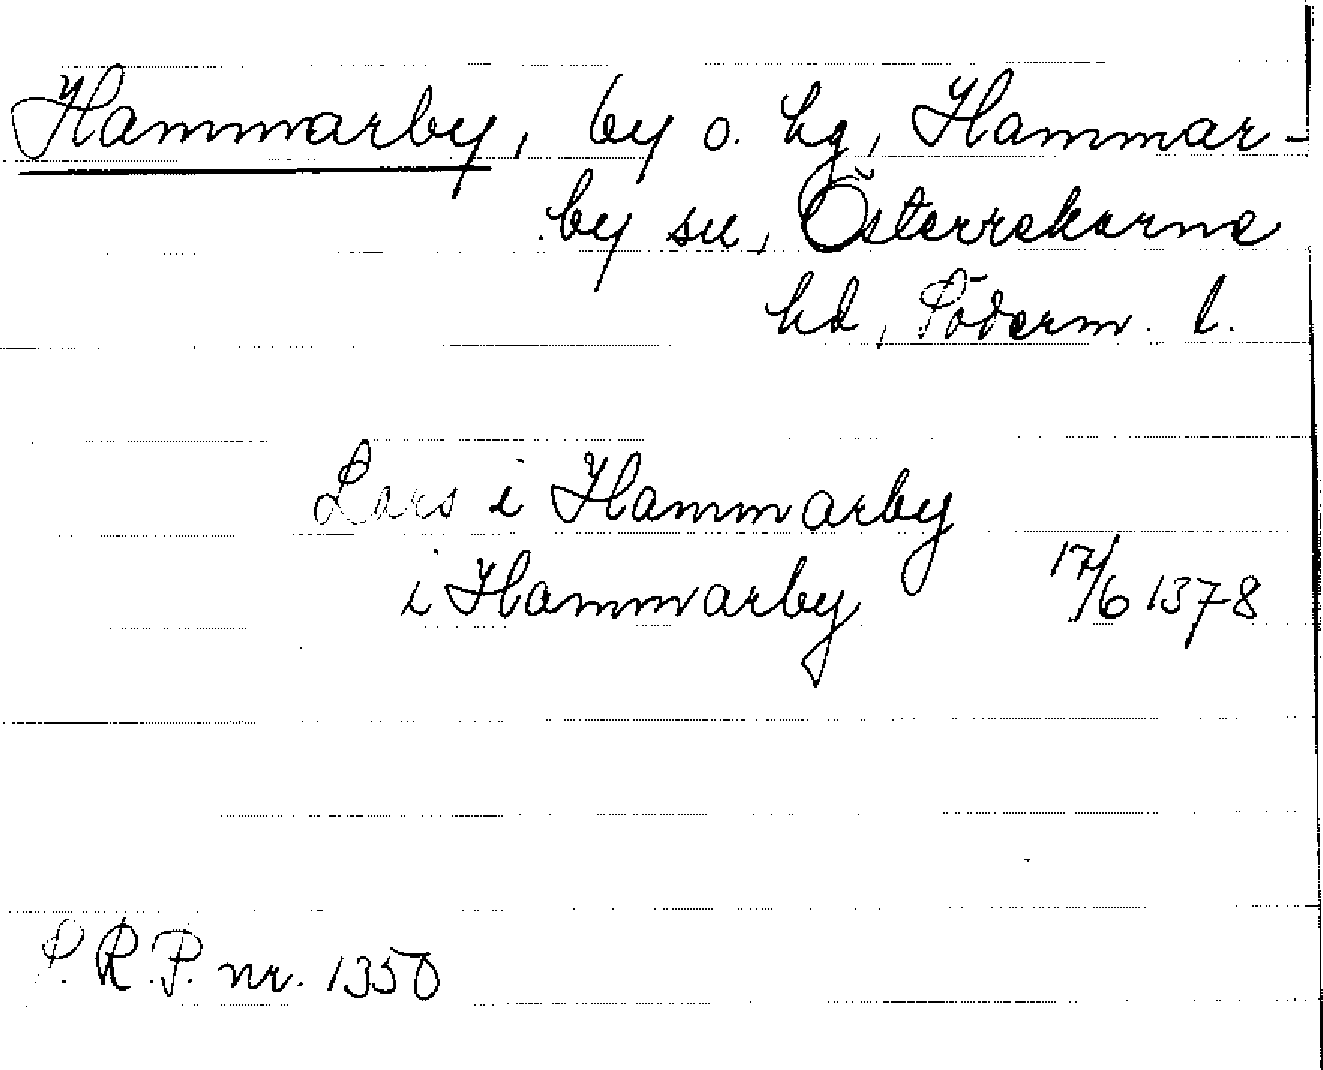 Hammarby, by o. hg, Hammar-
by sn, Österrekarne
hd, Söderm. l.
Lars i Hammarby
i Hammarby 17/6 1378
S.R.P. nr. 1350